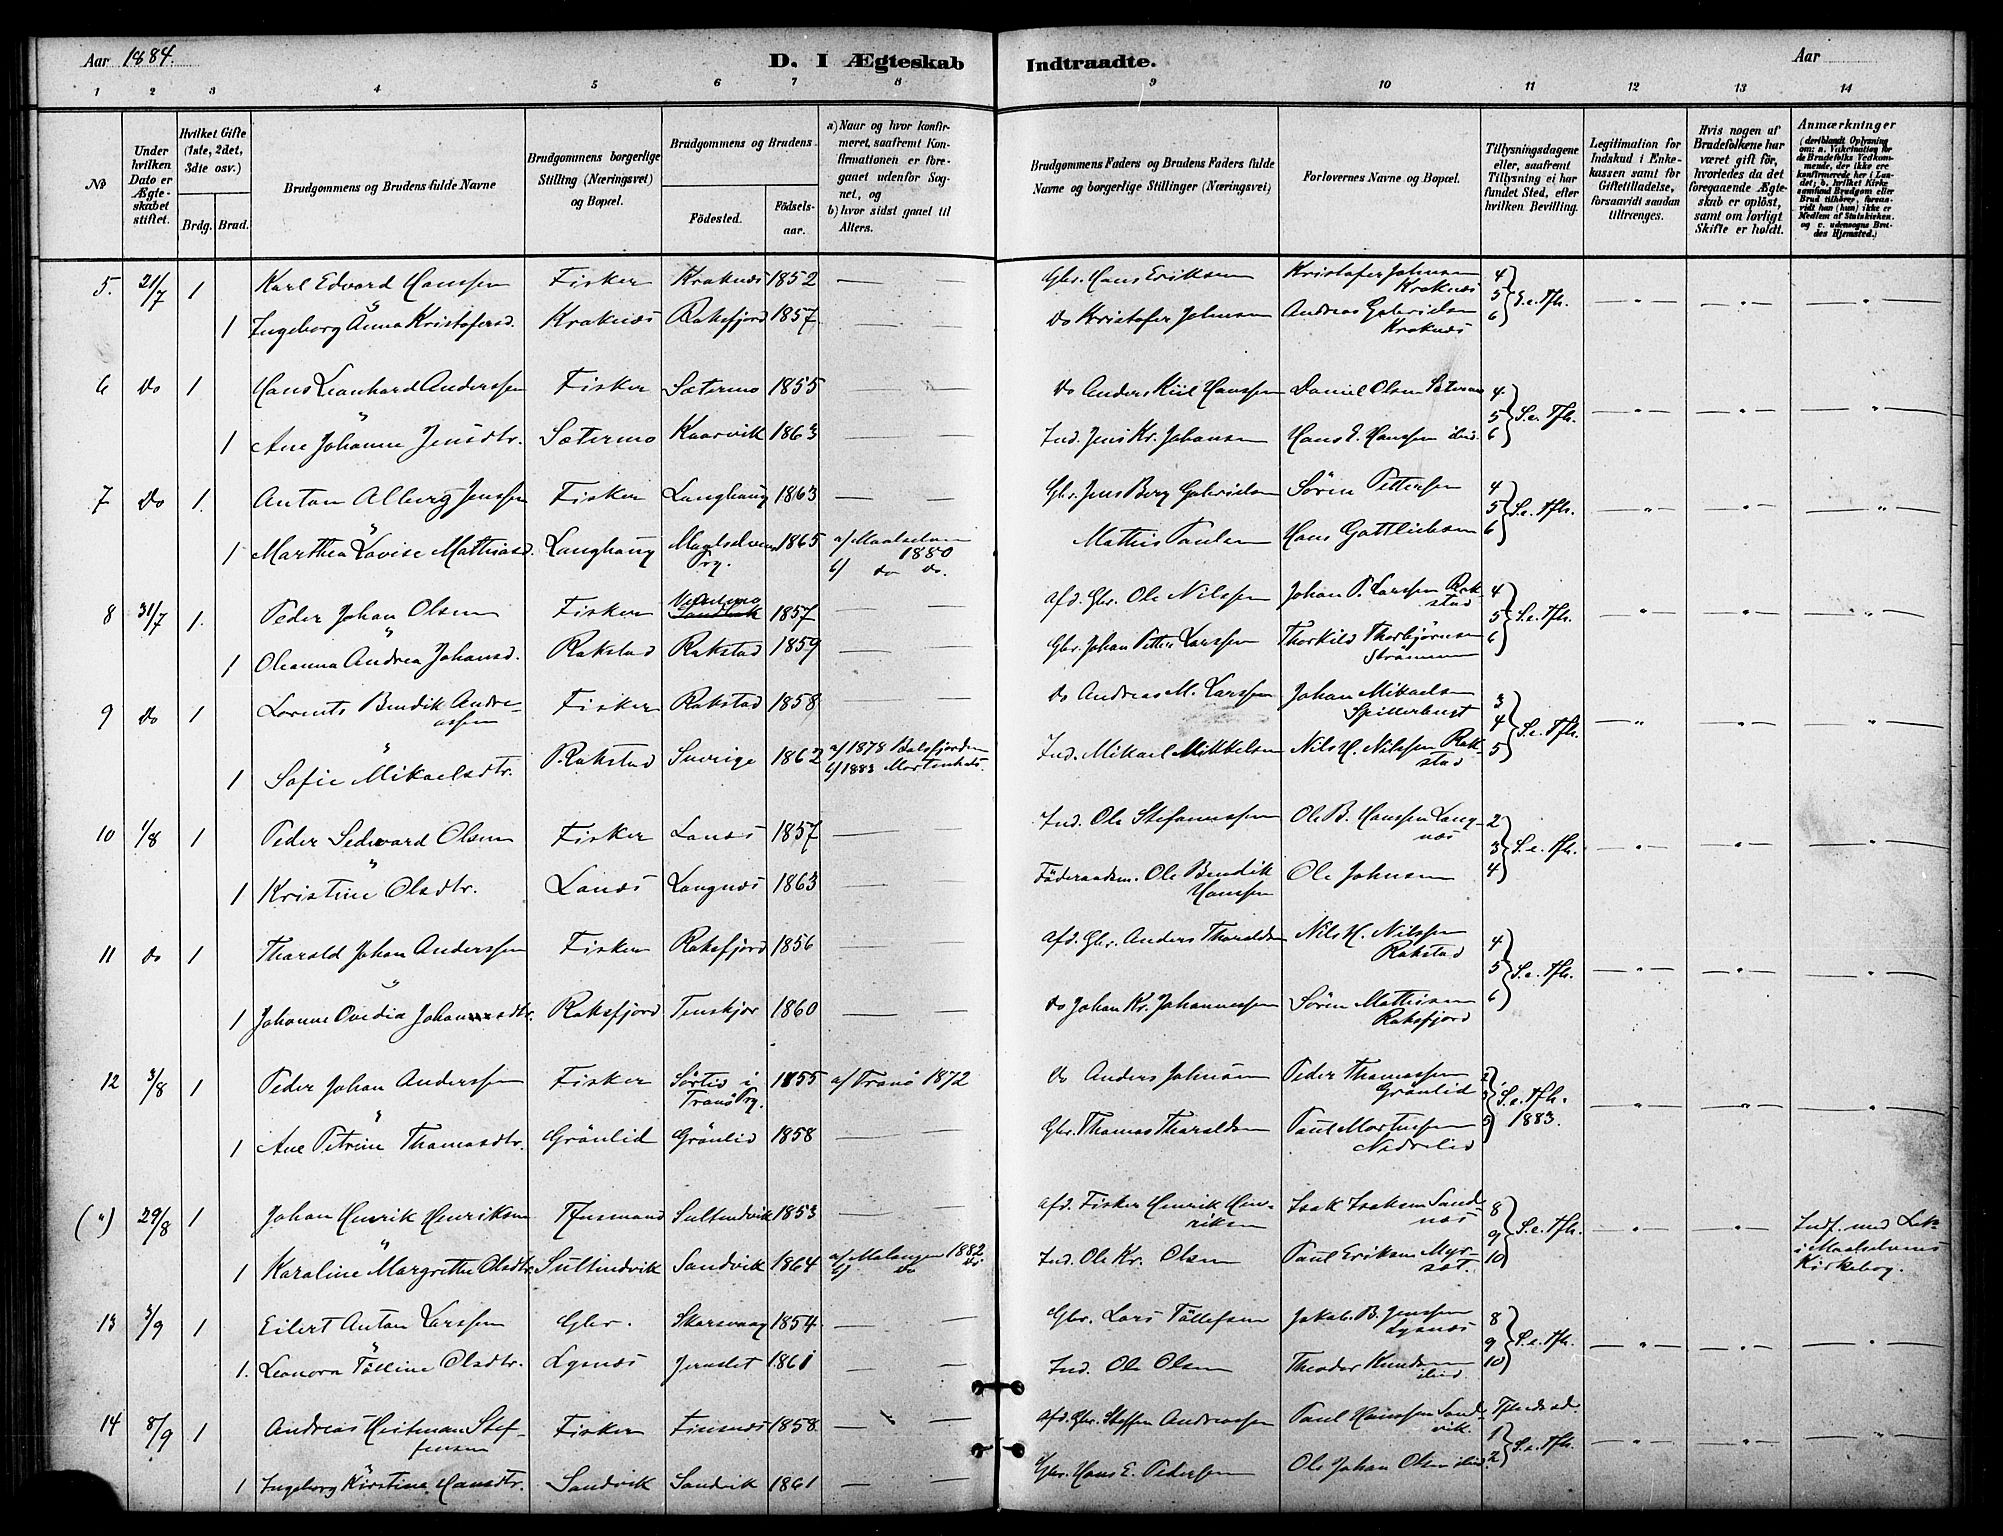 Aar 1884. D. I Ægteskab Indtraadte. Aar
1 2 3 4 5 6 7 8 9 10 11 12 13 14
No
Under hvilken Dato er Ægteskabet stiftet.
Hvilket Gifte (1ste, 2det, 3die osv.)
Brdg. Brud.
Brudgommens og Brudens fulde Navne
Brudgommens borgerlige Stilling (Næringsvei) og Bopæl.
Brudgommens og Brudens
Födested.
Födsels-aar.
a) Naar og hvor konfirmeret, saafremt Konfirmationen er foregaaet udenfor Sognet, og
b) hvor sidst gaaet til Alters.
Brudgommens Faders og Brudens Faders fulde Navne og borgerlige Stillinger (Næringsvei)
Forlovernes Navne og Bopæl.
Tillysningsdagene eller, saafremt Tillysning ei har fundet Sted, efter hvilken Bevilling.
Legitimation for Indskud i Enkekassen samt for Giftetilladelse, forsaavidt saadan tiltrænges.
Hvis nogen af Brudefolkene har været gift för, hvorledes da det foregaaende Ægteskab er oplöst, samt om lovligt Skifte er holdt.
Anmærkninger
(deriblandt Oplysning om: a. Vakcination for de Brudefolks Vedkommende, der ikke ere konfirmerede her i Landet; b. hvilket Kirkesamfund Brudgom eller Brud tilhörer, forsaavidt han (hun) ikke er Medlem af Statskirken. og c. udensogns Brudes Hjemsted.)
5. 21/7 1 Karl Edvard Hanssen Fisker Kraknæs 1852 — — Gbr. Hans Eriksen Kristofer Johnsen Kraknæs 4 5 6 S.e. Tfh.
1 Ingeborg Anna Kristofersd. Kraknæs Roksfjord 1857 — — Do Kristofer Johnsen Andreas Gabrielsen Kraknæs
6 do 1 Hans Leonhard Anderssen Fisker Sætermo 1855 — do Anders Kiil Hanssen Daniel Olsen Sætermo 4 5 6 S.e. Tfh.
1 Ane Johanne Jensdtr. Sætermo Kaarvik 1863 — — Ind. Jens Kr. Johansen Hans E. Hanssen ibid.
7 do 1. Anton Alberg Jenssen Fisker Langhaug 1863 — — Gbr. Jens Berg Gabrielsen Sören Pettersen 4 5 6 S.e. Tfh.
1 Marthea Lovise Mathiasd. Langhaug Maalselvens Prg. 1865 a/ Maalselven 1880 b/ do do. Mathis Paulsen Hans Gottliebsen
8 31/7 1. Peder Johan Olsen Fisker 1857 — — afd. Gbr. Ole Nilssen Johan P. Larssen Rakstad 4 5 6 S.e. Tfh.
1 Oleanna Andrea Johansd. Rakstad Rakstad 1859 — — Gbr. Johan Petter Larssen Thorkild Thorbjörnsen Strömmen
9 do 1 Lorents Bendik Andreassen Fisker Rakstad 1858 — — do Andreas M. Larssen Johan Mikaelsen Spillerbugt 3 4 5 S.e. Tfh.
1 Sofie Mikaelsdtr. Rakstad Sverige 1862 a/ 1878 Balsfjorden b/ 1883 Mortenhals. Ind. Mikael Mikkelsen Nils H. Nilssen Rakstad
10 1/8 1 Peder Sedevard Olsen Fisker Lanæs 1857 — — Ind. Ole Stefanussen Ole B. Hanssen Langnæs 2 3 4 S.e. Tfh.
1 Kristine Olsdtr. Lanæs Langnæs 1863 — — Föderaadsm. Ole Bendik Hanssen Ole Johnsen
11 do 1 Tharald Johan Anderssen Fisker Roksfjord 1856 — — afd. Gbr. Anders Tharaldsen Nils H. Nilssen Rakstad 4 5 6 S.e. Tfh.
1 Johanne Ovedia Johansdtr. Roksfjord Tenskjær 1860 — — do Johan Kr. Johannessen Sören Mathisen Roksfjord
12 3/8 1 Peder Johan Anderssen Fisker Sörlid i Tranö Prg. 1855 a/ Tranö 1872 do Anders Johnsen Peder Thomassen Grönlid 2 3 5 S.e. Tfh. 1883.
1 Ane Petrine Thomasdtr. Grönlid Grönlid 1858 — — Gbr. Thomas Tharaldsen Paul Mortensen Nedrelid
(") 29/8 1 Johan Henrik Henriksen Thusmand Sultindvik 1853 — — afd. Fisker Henrik Henriksen Isak Isaksen Sandnæs 8 9 10 S.e. Tfh. Indf. med Lit. i Maalselvens Kirkebog.
1 Karoline Margrethe Olsdtr. Sultindvik Sandvik 1864 a/ Malangen 1882 b/ do do. Ind. Ole Kr. Olsen Paul Eriksen
13 3/9 1 Eilert Anton Larssen Gbr. Skarsvaag 1854 — — Gbr. Lars Töllefsen Jakob B. Jenssen Lysnæs 8 9 10 S.e. Tfh.
1. Leonora Tölline Olsdtr. Lysnæs 1861 — — Ind. Ole Olsen Theodor Knudsen ibid
14 8/9 1 Andreas Heitman Steffensen Fisker Finsnæs 1858 — — afd. Gbr. Steffen Andreassen Paul Hanssen Sandvik. 1 2 S.e. Tfh.
1 Ingeborg Kirstine Hansdtr. Sandvik Sandvik 1861 — — Gbr. Hans E. Pedersen Ole Johan Olsen ibid.